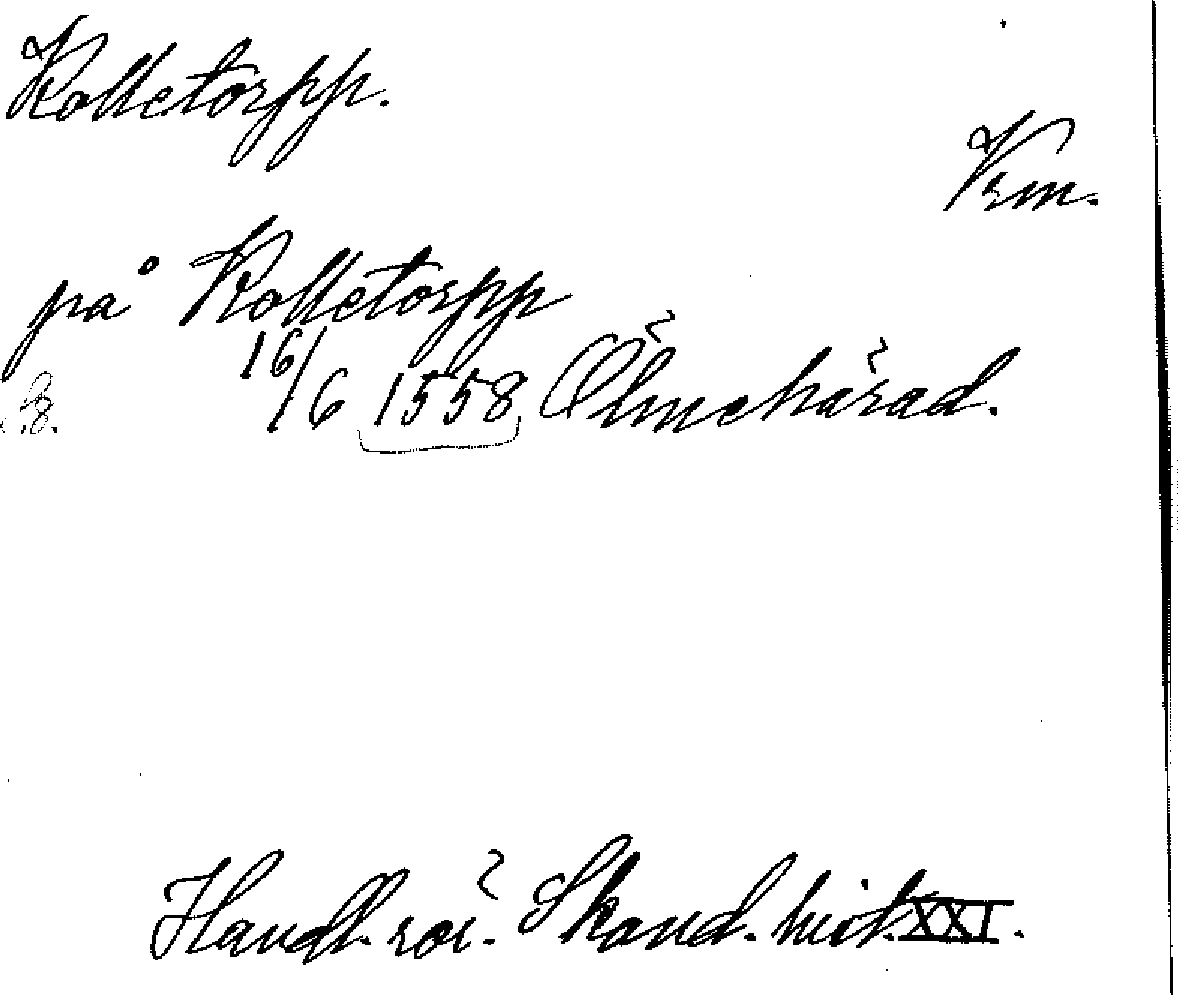 Kolletorpp.
Vrm.
på Kolletorpp
16/6 1558 Ölmehärad.
Handl. rör. Skand. hist. XXI.